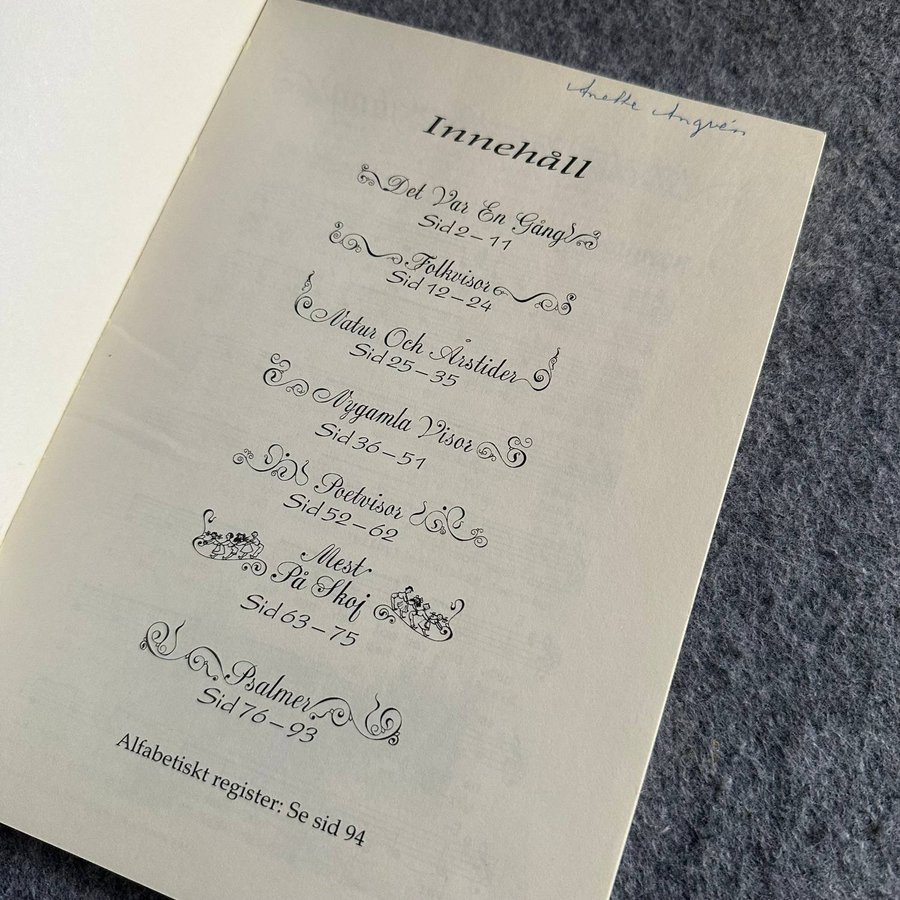 Anette Angvén
Innehåll
Det Var En Gång
Sid 2 – 11
Folkvisor
Sid 12 – 24
Natur Och Årstider
Sid 25 – 35
Nygamla Visor
Sid 36 – 51
Poetvisor
Sid 52 – 62
Mest
På Skoj
Sid 63 – 75
Psalmer
Sid 76 – 93
Alfabetiskt register: Se sid 94